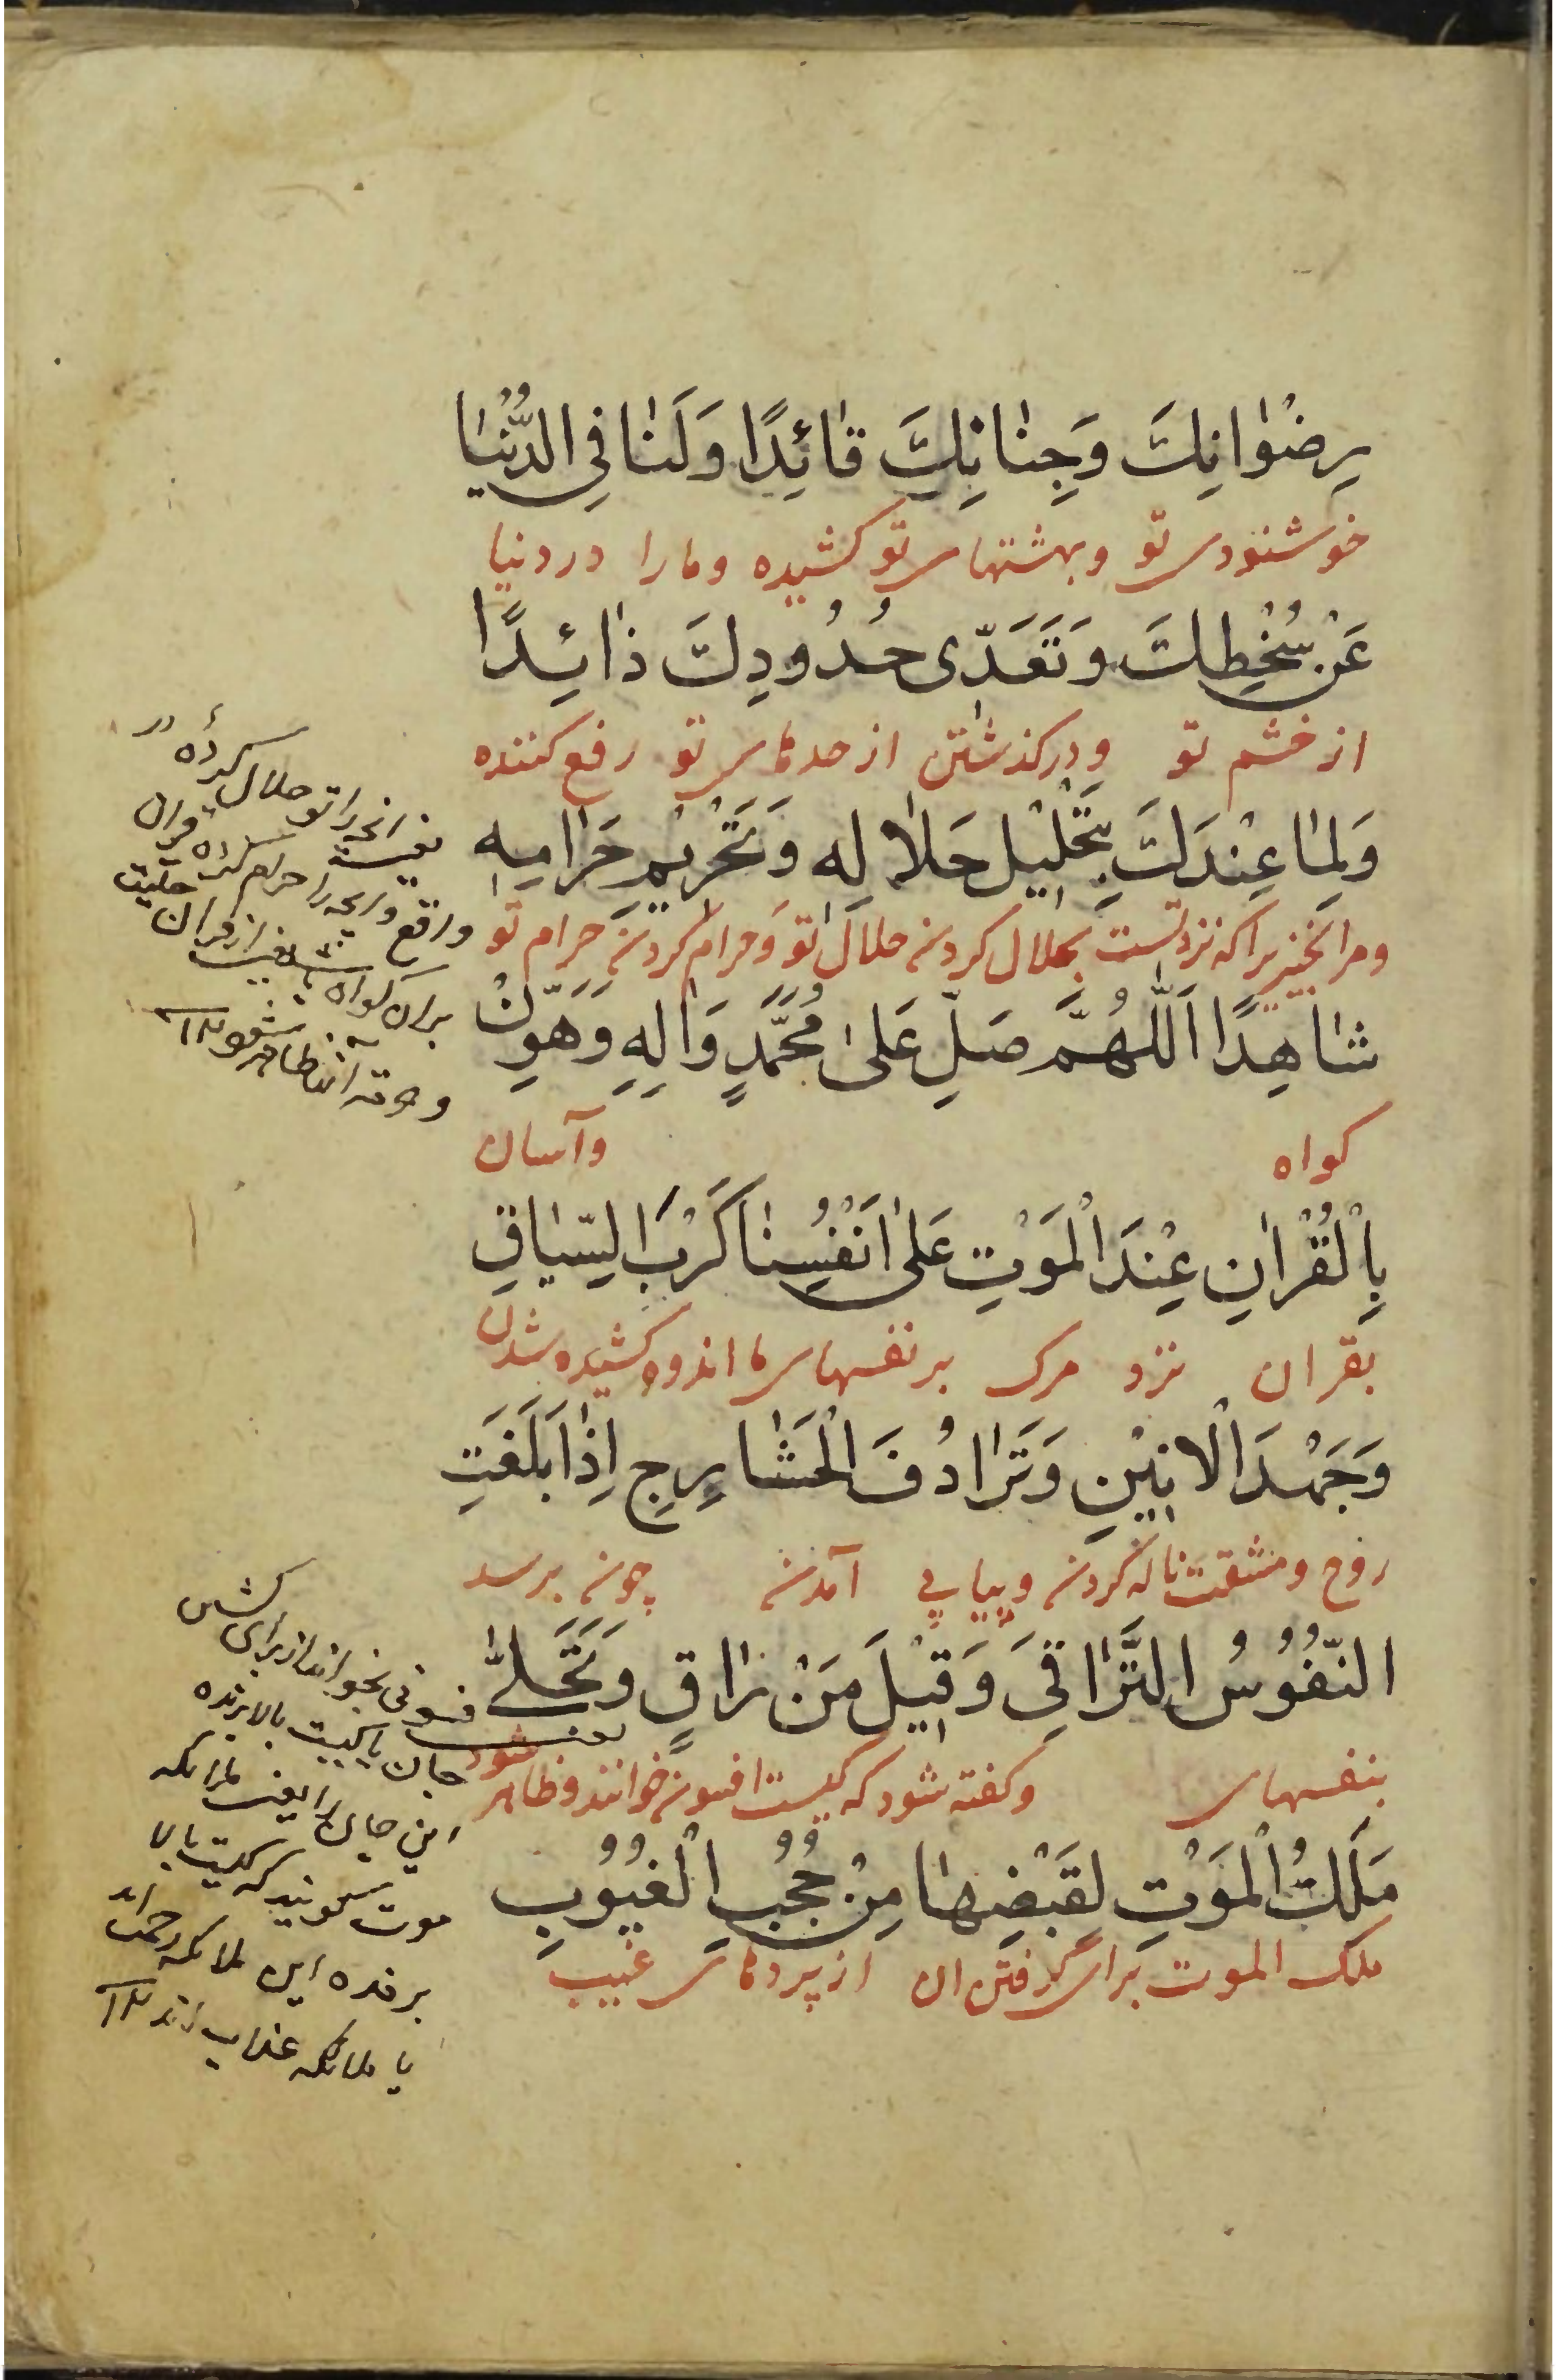 رِضْوَانِكَ وَجِنَانِكَ قَائِدًا وَلَنَا فِي الدُّنْيَا
خوشنودی تو وبهشتهای تو کشیده ومارا در دنیا
عَنْ سُخْطِكَ وَتَعَدّى حُدُودِكَ ذَائِدًا
از خشم تو ودرکذشتن از حدهای تو رفع کننده
وَلِمَا عِنْدَكَ بِتَحْلِيْلِ حَلَالِهِ وَتَحْرِيْمِ حَرَامِهِ
ومرانچیزیرا که نزد تست بحلال کردن حلال تو وحرام کردن حرام تو
شَاهِدًا اَللّٰهُمَّ صَلِّ عَلىٰ مُحَمَّدٍ وَاٰلِهِ وَهَوِّنْ
کواه وآسان
بِالْقُرْاٰنِ عِنْدَ الْمَوْتِ عَلىٰ اَنْفُسِنَا كَرْبَ السِّيَاقِ
بقران نزد مرک بر نفسهای ما اندوه کشیده شدن
وَجَهْدَ الْاَنِيْنِ وَتَرَادُفَ الْحَشَارِجِ اِذَا بَلَغَتِ
روح ومشقت ناله کردن وپیاپی آمدن چون برسد
النُّفُوْسُ التَّرَاقِيَ وَقِيْلَ مَنْ رَاقٍ وَتَجَلّٰى
بنفسهای وکفته شود که کیست افسون خوانند وظاهر شود
مَلَكُ الْمَوْتِ لِقَبْضِهَا مِنْ حُجُبِ الْغُيُوْبِ
ملک الموت برای گرفتن ان از پردهای غیب
یعنی انچه را تو حلال کرده در
واقع وانچه را حرام کرده قران
بران کواه باشد یعنی از قران حلیت
وحرمت انها ظاهر شود ۱۲
یعنی فسونی بخواند از برای کشش
جان یا کیست بالا برنده
این جان را یعنی ملائکه
موت میکویند که کیست بالا
برنده این ملائکه رحمت اند
یا ملائکه عذاب اند ۱۲